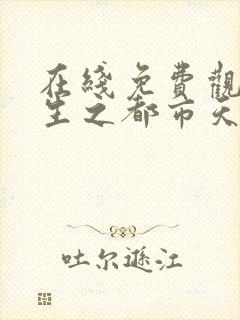 在綫免費觀
生之都市天
吐尔逊江